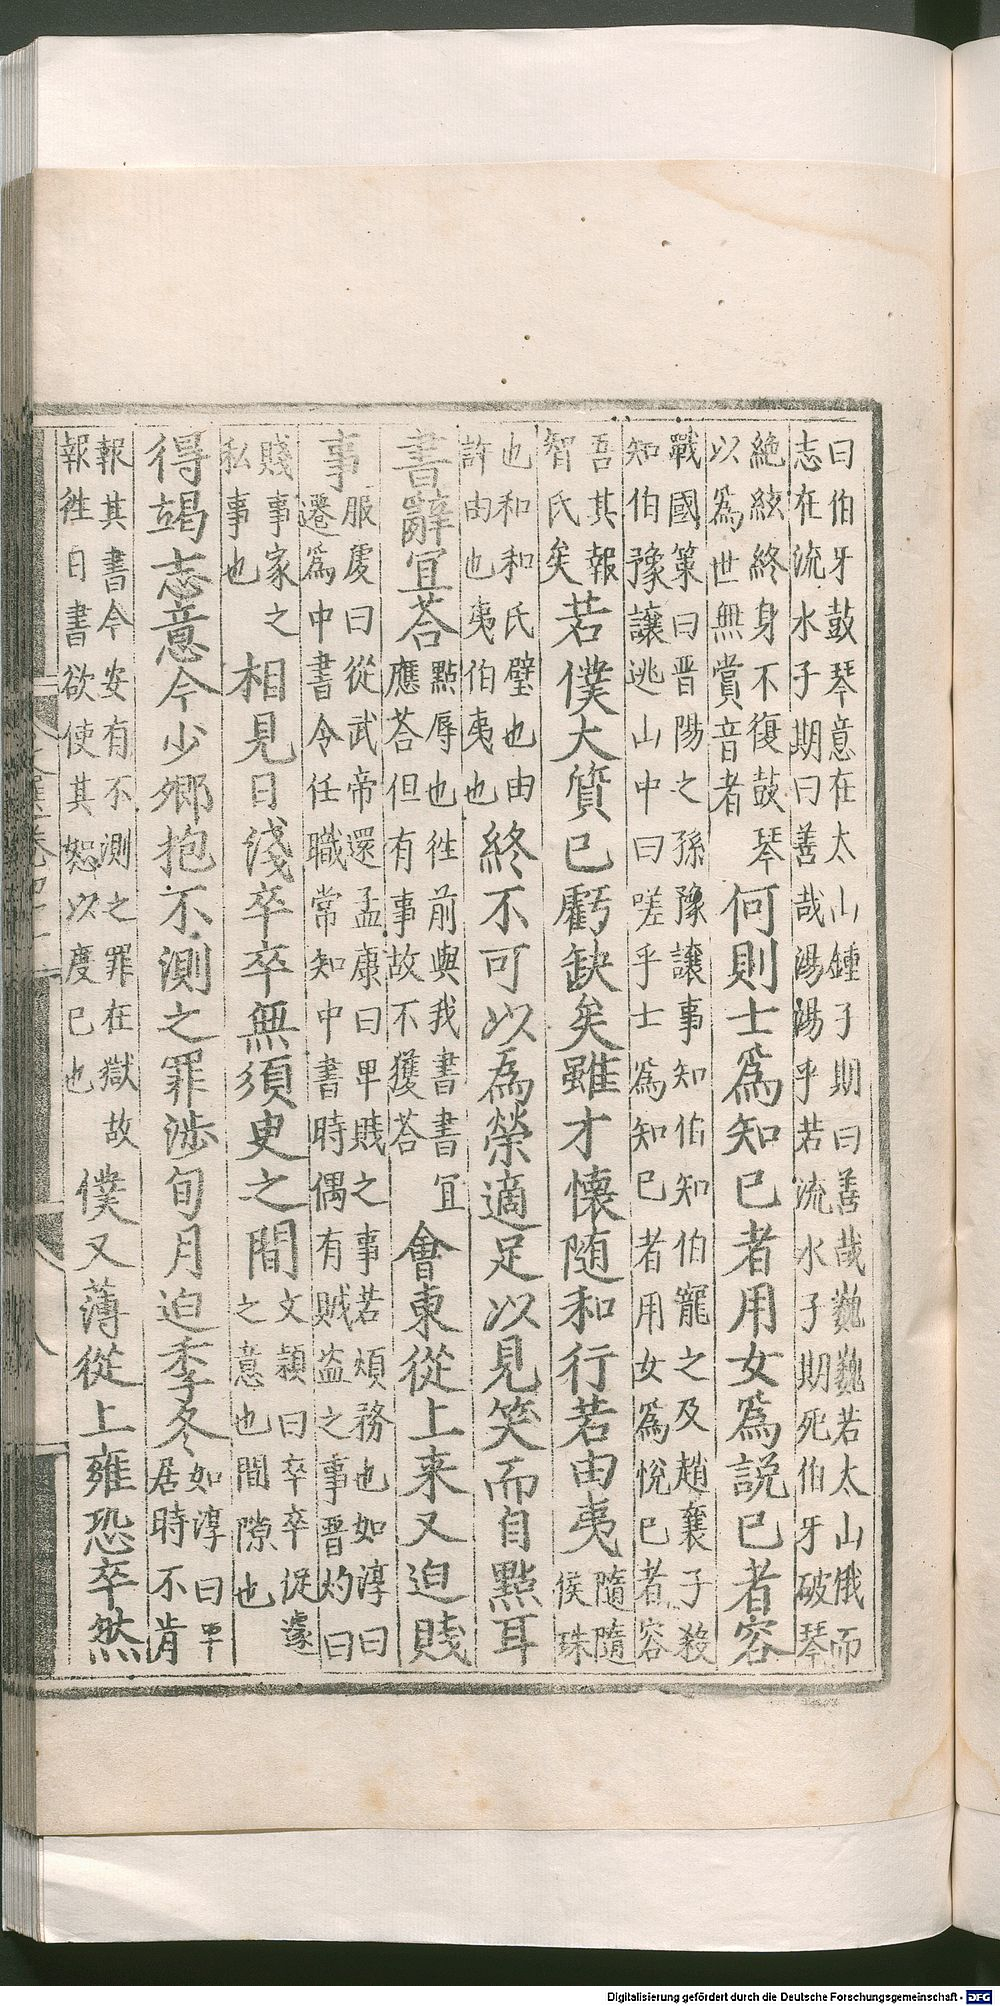 曰伯牙鼓琴意在太山鍾子期曰善哉巍巍若太山俄而
志在流水子期曰善哉湯湯乎若流水子期死伯牙破琴
絶絃終身不復鼓琴
以爲世無賞音者
何則士爲知已者用女爲説已者容
戰國策曰晋陽之孫豫讓事知伯知伯寵之及趙襄子殺
知伯豫讓逃山中曰嗟乎士爲知已者用女爲悅已者容
吾其報
智氏矣
若僕大質已虧缺矣雖才懷随和行若由夷
隨隨
侯珠
也和和氏璧也由
許由也夷伯夷也
終不可以爲榮適足以見笑而自點耳
書辭宜荅
點辱也徃前與我書書宜
應荅但有事故不獲荅
會東從上来又迫賤
事
服虔曰從武帝還孟康曰卑賤之事若煩務也如淳曰
遷爲中書令任職常知中書時偶有賊盗之事晋灼曰
賤事家之
私事也
相見日淺卒卒無須臾之間
文穎曰卒卒促遽
之意也間隙也
得竭志意今少卿抱不測之罪渉旬月迫季冬
如淳曰平
居時不肯
報其書今安有不測之罪在獄故
報徃日書欲使其恕以度已也
僕又薄從上雍恐卒然
Digitalisierung gefördert durch die Deutsche Forschungsgemeinschaft - DFG